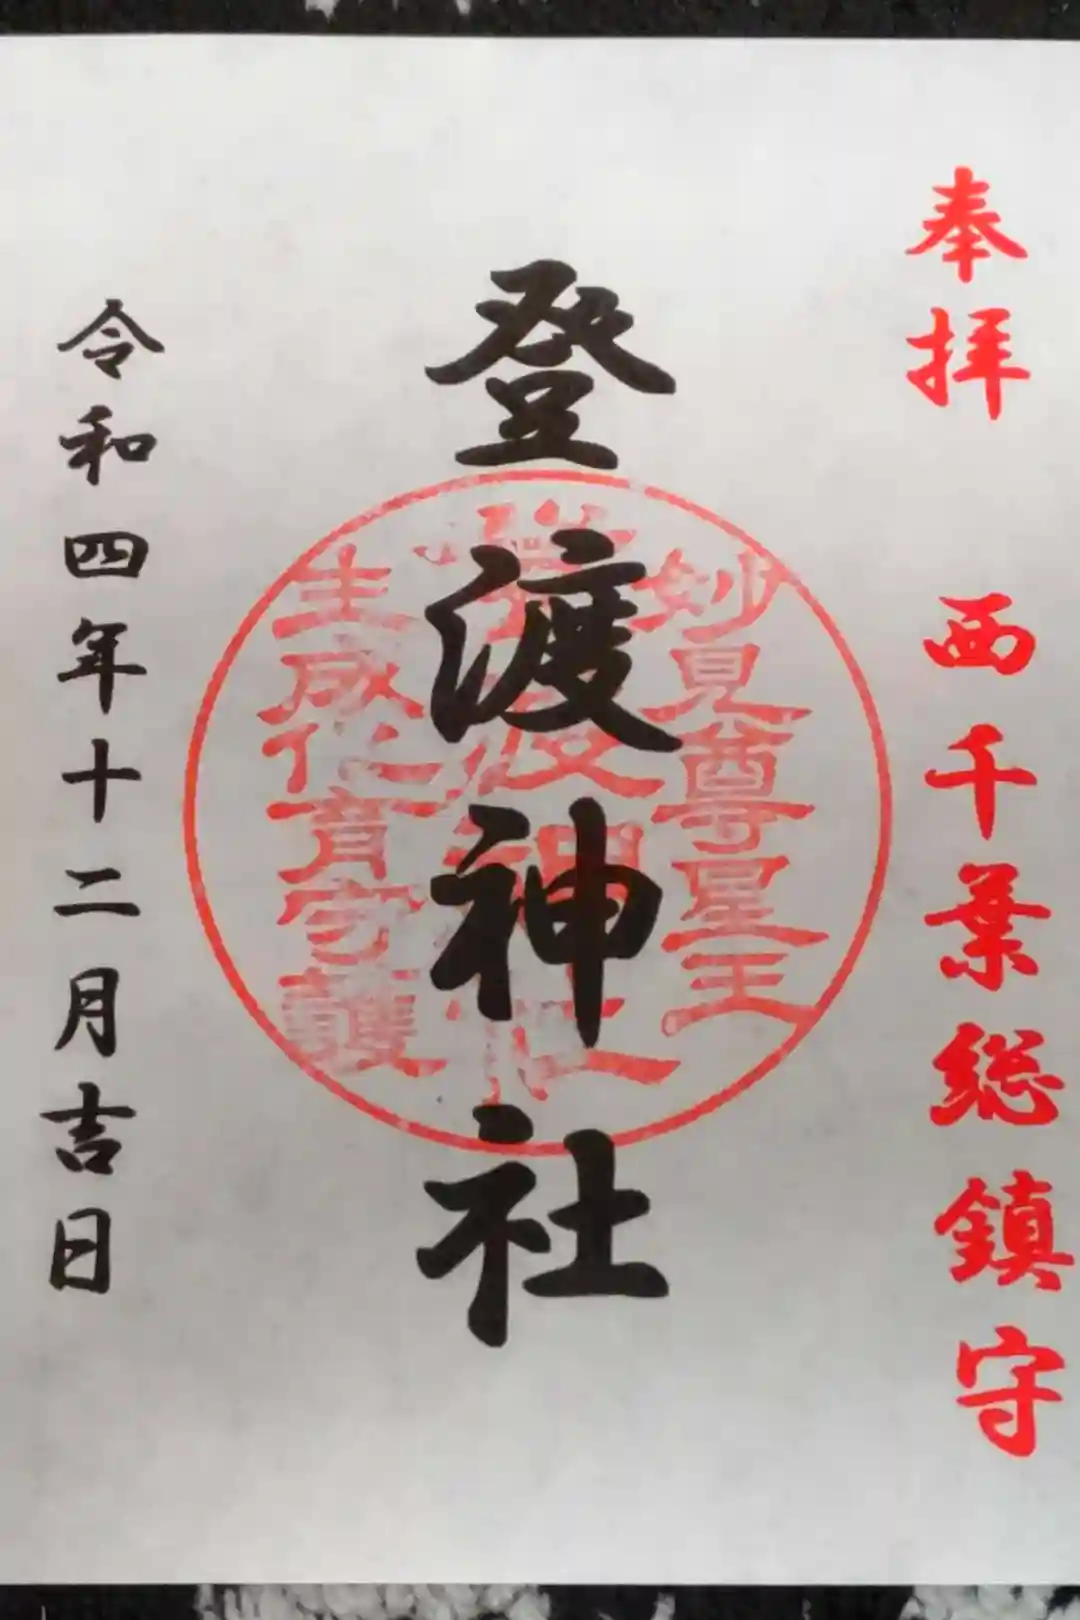 奉拝 西千葉総鎮守
登渡神社
妙見尊星王
登渡神社
生成化育守護
令和四年十二月吉日